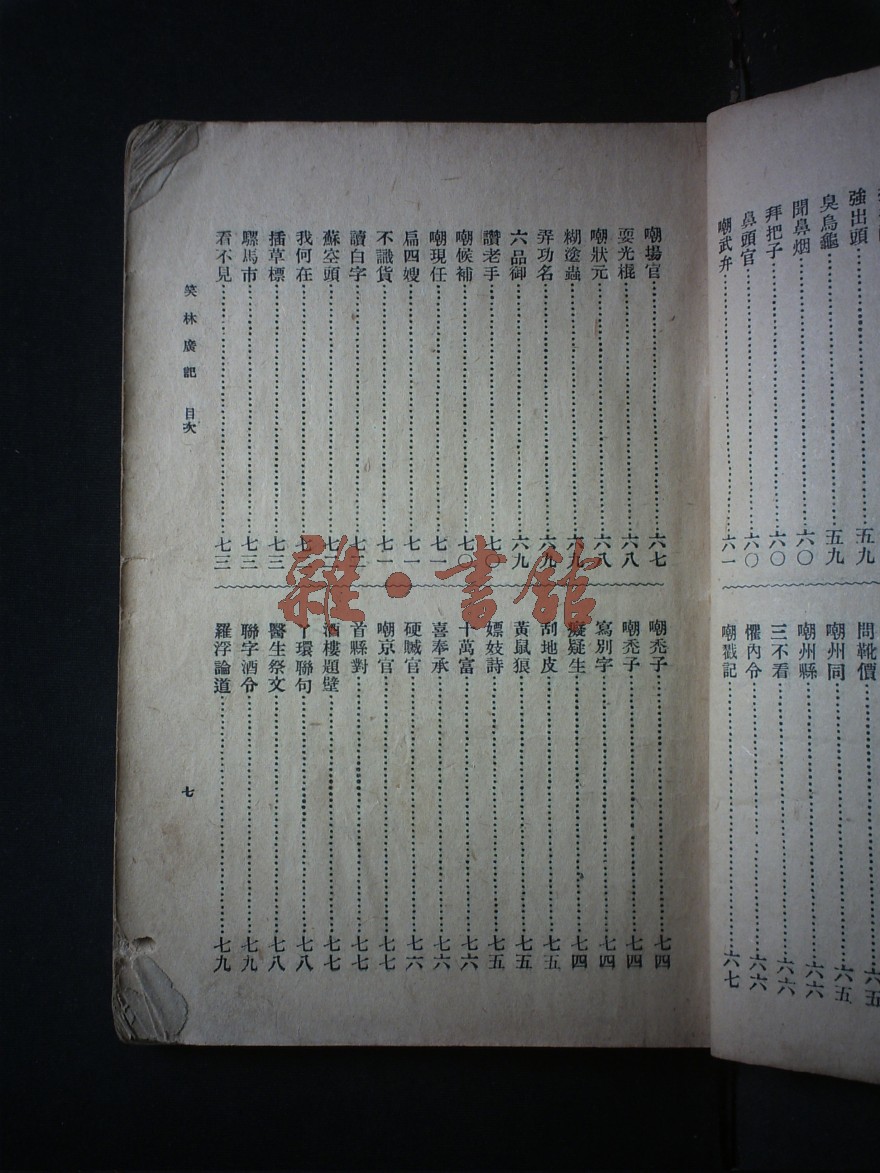 強出頭 五九
臭烏龜 五九
聞鼻烟 六〇
拜把子 六〇
鼻頭官 六〇
嘲武弁 六一
問靴價 六五
嘲州同 六五
嘲州縣 六六
三不看 六六
懼內令 六六
嘲戳記 六七
嘲場官 六七
耍光棍 六八
嘲狀元 六八
糊塗蟲 六九
弄功名 六九
六品御 六九
讚老手 七〇
嘲候補 七〇
嘲現任 七一
扁四嫂 七一
不識貨 七一
讀白字 七二
蘇空頭 七二
我何在
插草標 七三
騾馬市 七三
看不見 七三
嘲禿子 七四
嘲禿子 七四
寫別字 七四
癡疑生 七四
刮地皮 七五
黃鼠狼 七五
嫖妓詩 七五
十萬富 七六
喜奉承 七六
硬贓官 七六
嘲京官 七七
首縣對 七七
酒樓題壁 七七
丫環聯句 七八
醫生祭文 七八
聯字酒令 七九
羅浮論道 七九
笑林廣記 目次
七
雜·書館